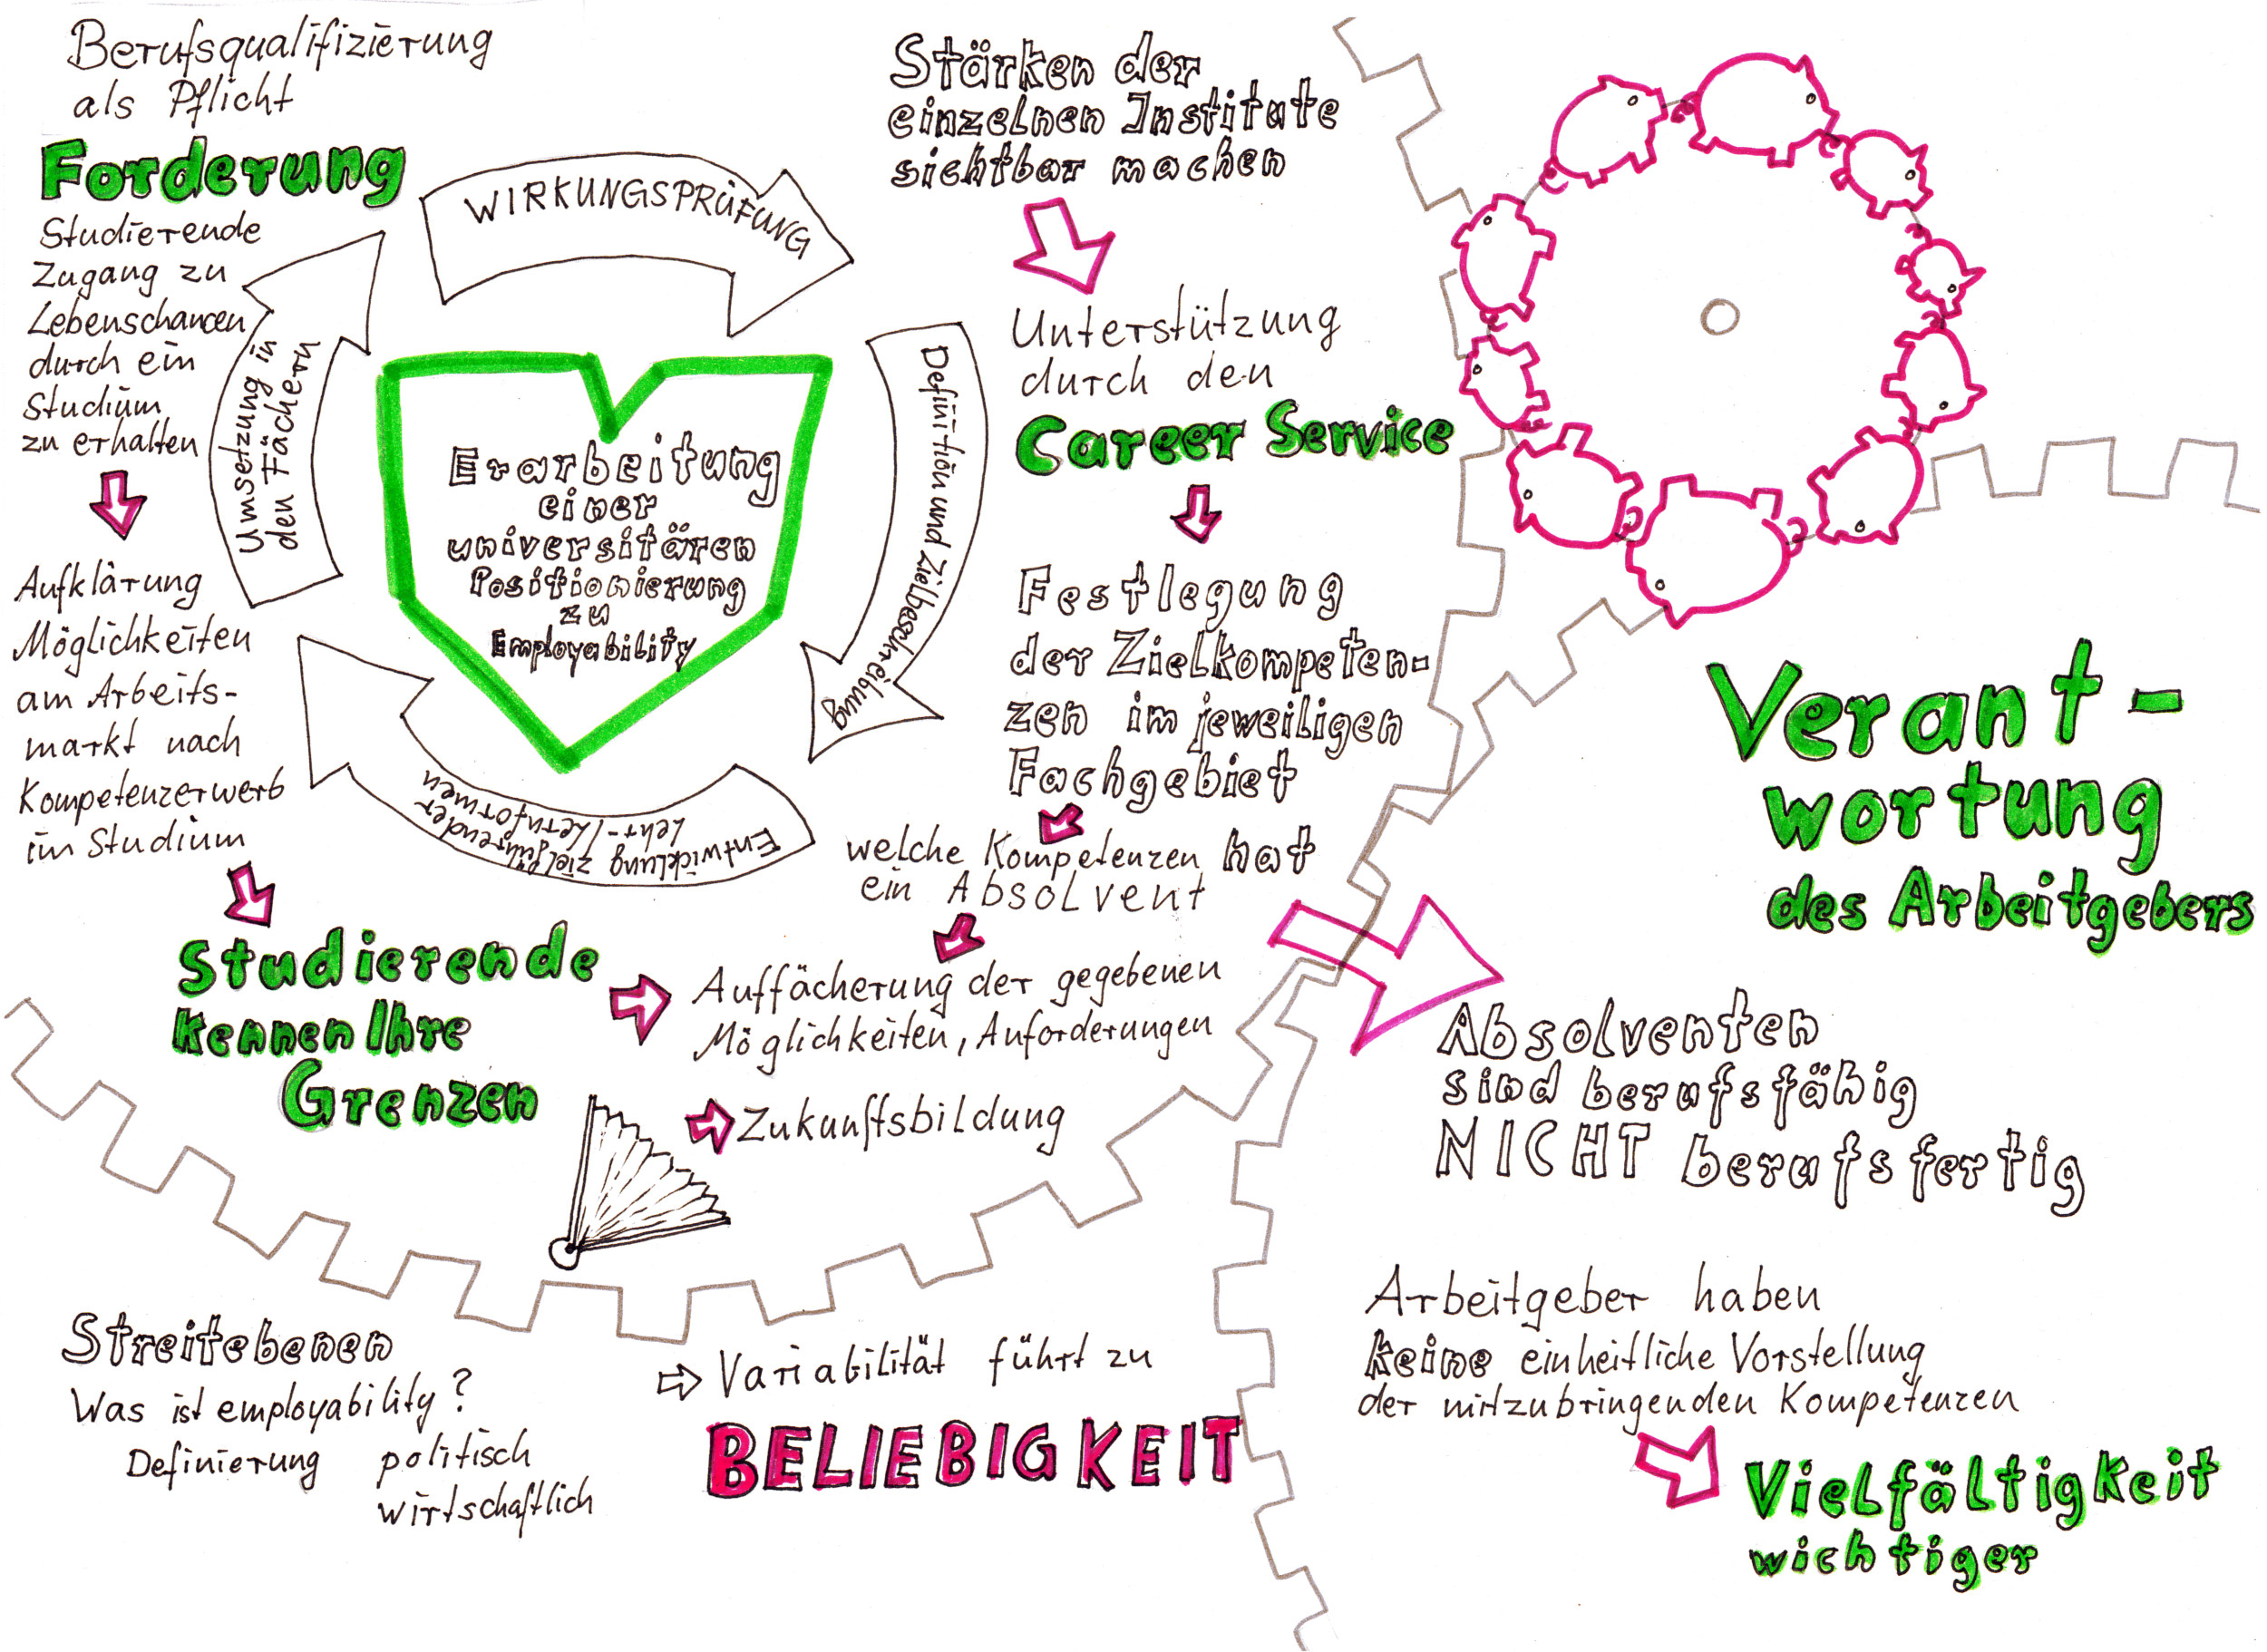 Berufsqualifizierung
als Pflicht
Forderung
Studierende
Zugang zu
Lebenschancen
durch ein
Studium
zu erhalten
Aufklärung
Möglichkeiten
am Arbeits-
markt nach
Kompetenzerwerb
im Studium
Studierende
kennen Ihre
Grenzen
WIRKUNGSPRÜFUNG
Definition und Zielbeschreibung
Entwicklung zielführender
Lehr-/Lernformen
Umsetzung in
den Fächern
Erarbeitung
einer
universitären
Positionierung
zu
Employability
Stärken der
einzelnen Institute
sichtbar machen
Unterstützung
durch den
Career Service
Festlegung
der Zielkompeten-
zen im jeweiligen
Fachgebiet
welche Kompetenzen hat
ein Absolvent
Auffächerung der gegebenen
Möglichkeiten, Anforderungen
Zukunftsbildung
Streitebenen
Was ist employability?
Definierung politisch
wirtschaftlich
Variabilität führt zu
BELIEBIGKEIT
Verant-
wortung
des Arbeitgebers
Absolventen
sind berufsfähig
NICHT berufsfertig
Arbeitgeber haben
keine einheitliche Vorstellung
der mitzubringenden Kompetenzen
Vielfältigkeit
wichtiger